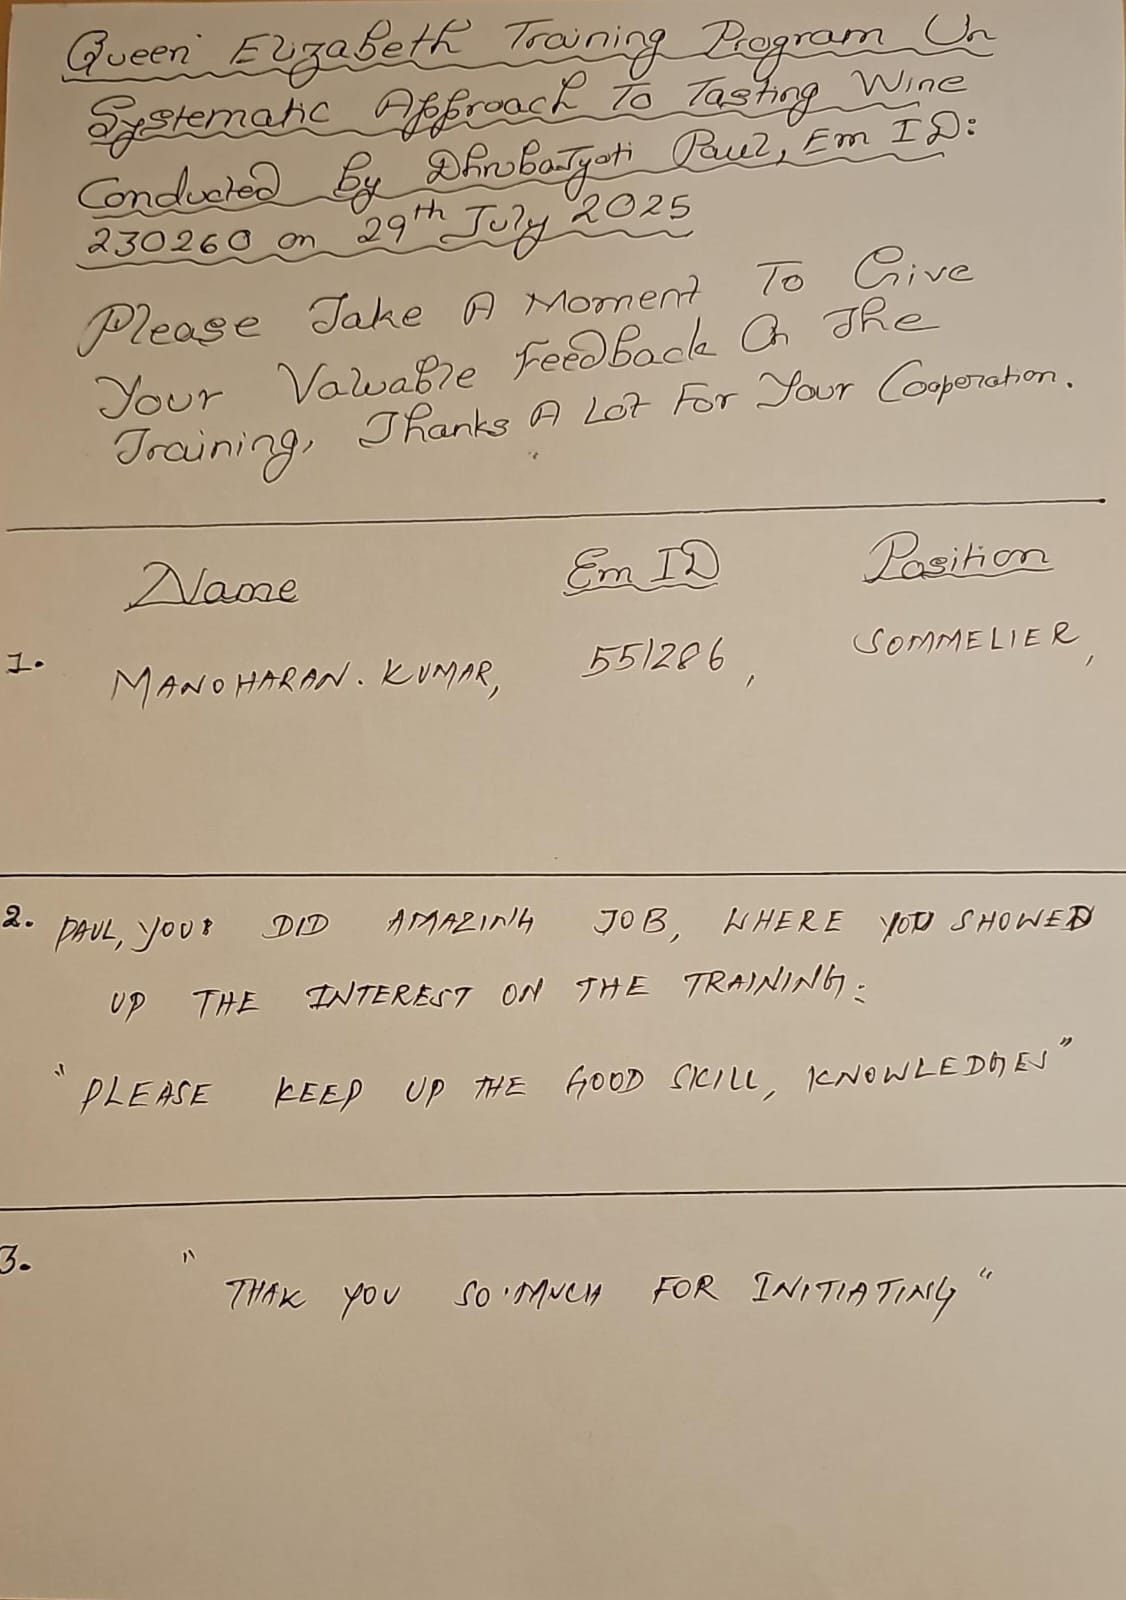 Queen Elizabeth Training Program On
Systematic Approach To Tasting Wine
Conducted By Dhrubajyoti Paul, Em ID:
230260 on 29th July 2025
Please Take A Moment To Give
Your Valuable Feedback On The
Training, Thanks A Lot For Your Cooperation.
Name Em ID Position
1. MANOHARAN. KUMAR, 551286, SOMMELIER,
2. PAUL, YOU DID AMAZING JOB, WHERE YOU SHOWED
UP THE INTEREST ON THE TRAINING.
"PLEASE KEEP UP THE GOOD SKILL, KNOWLEDGES"
3. "THAK YOU SO MUCH FOR INITIATING"